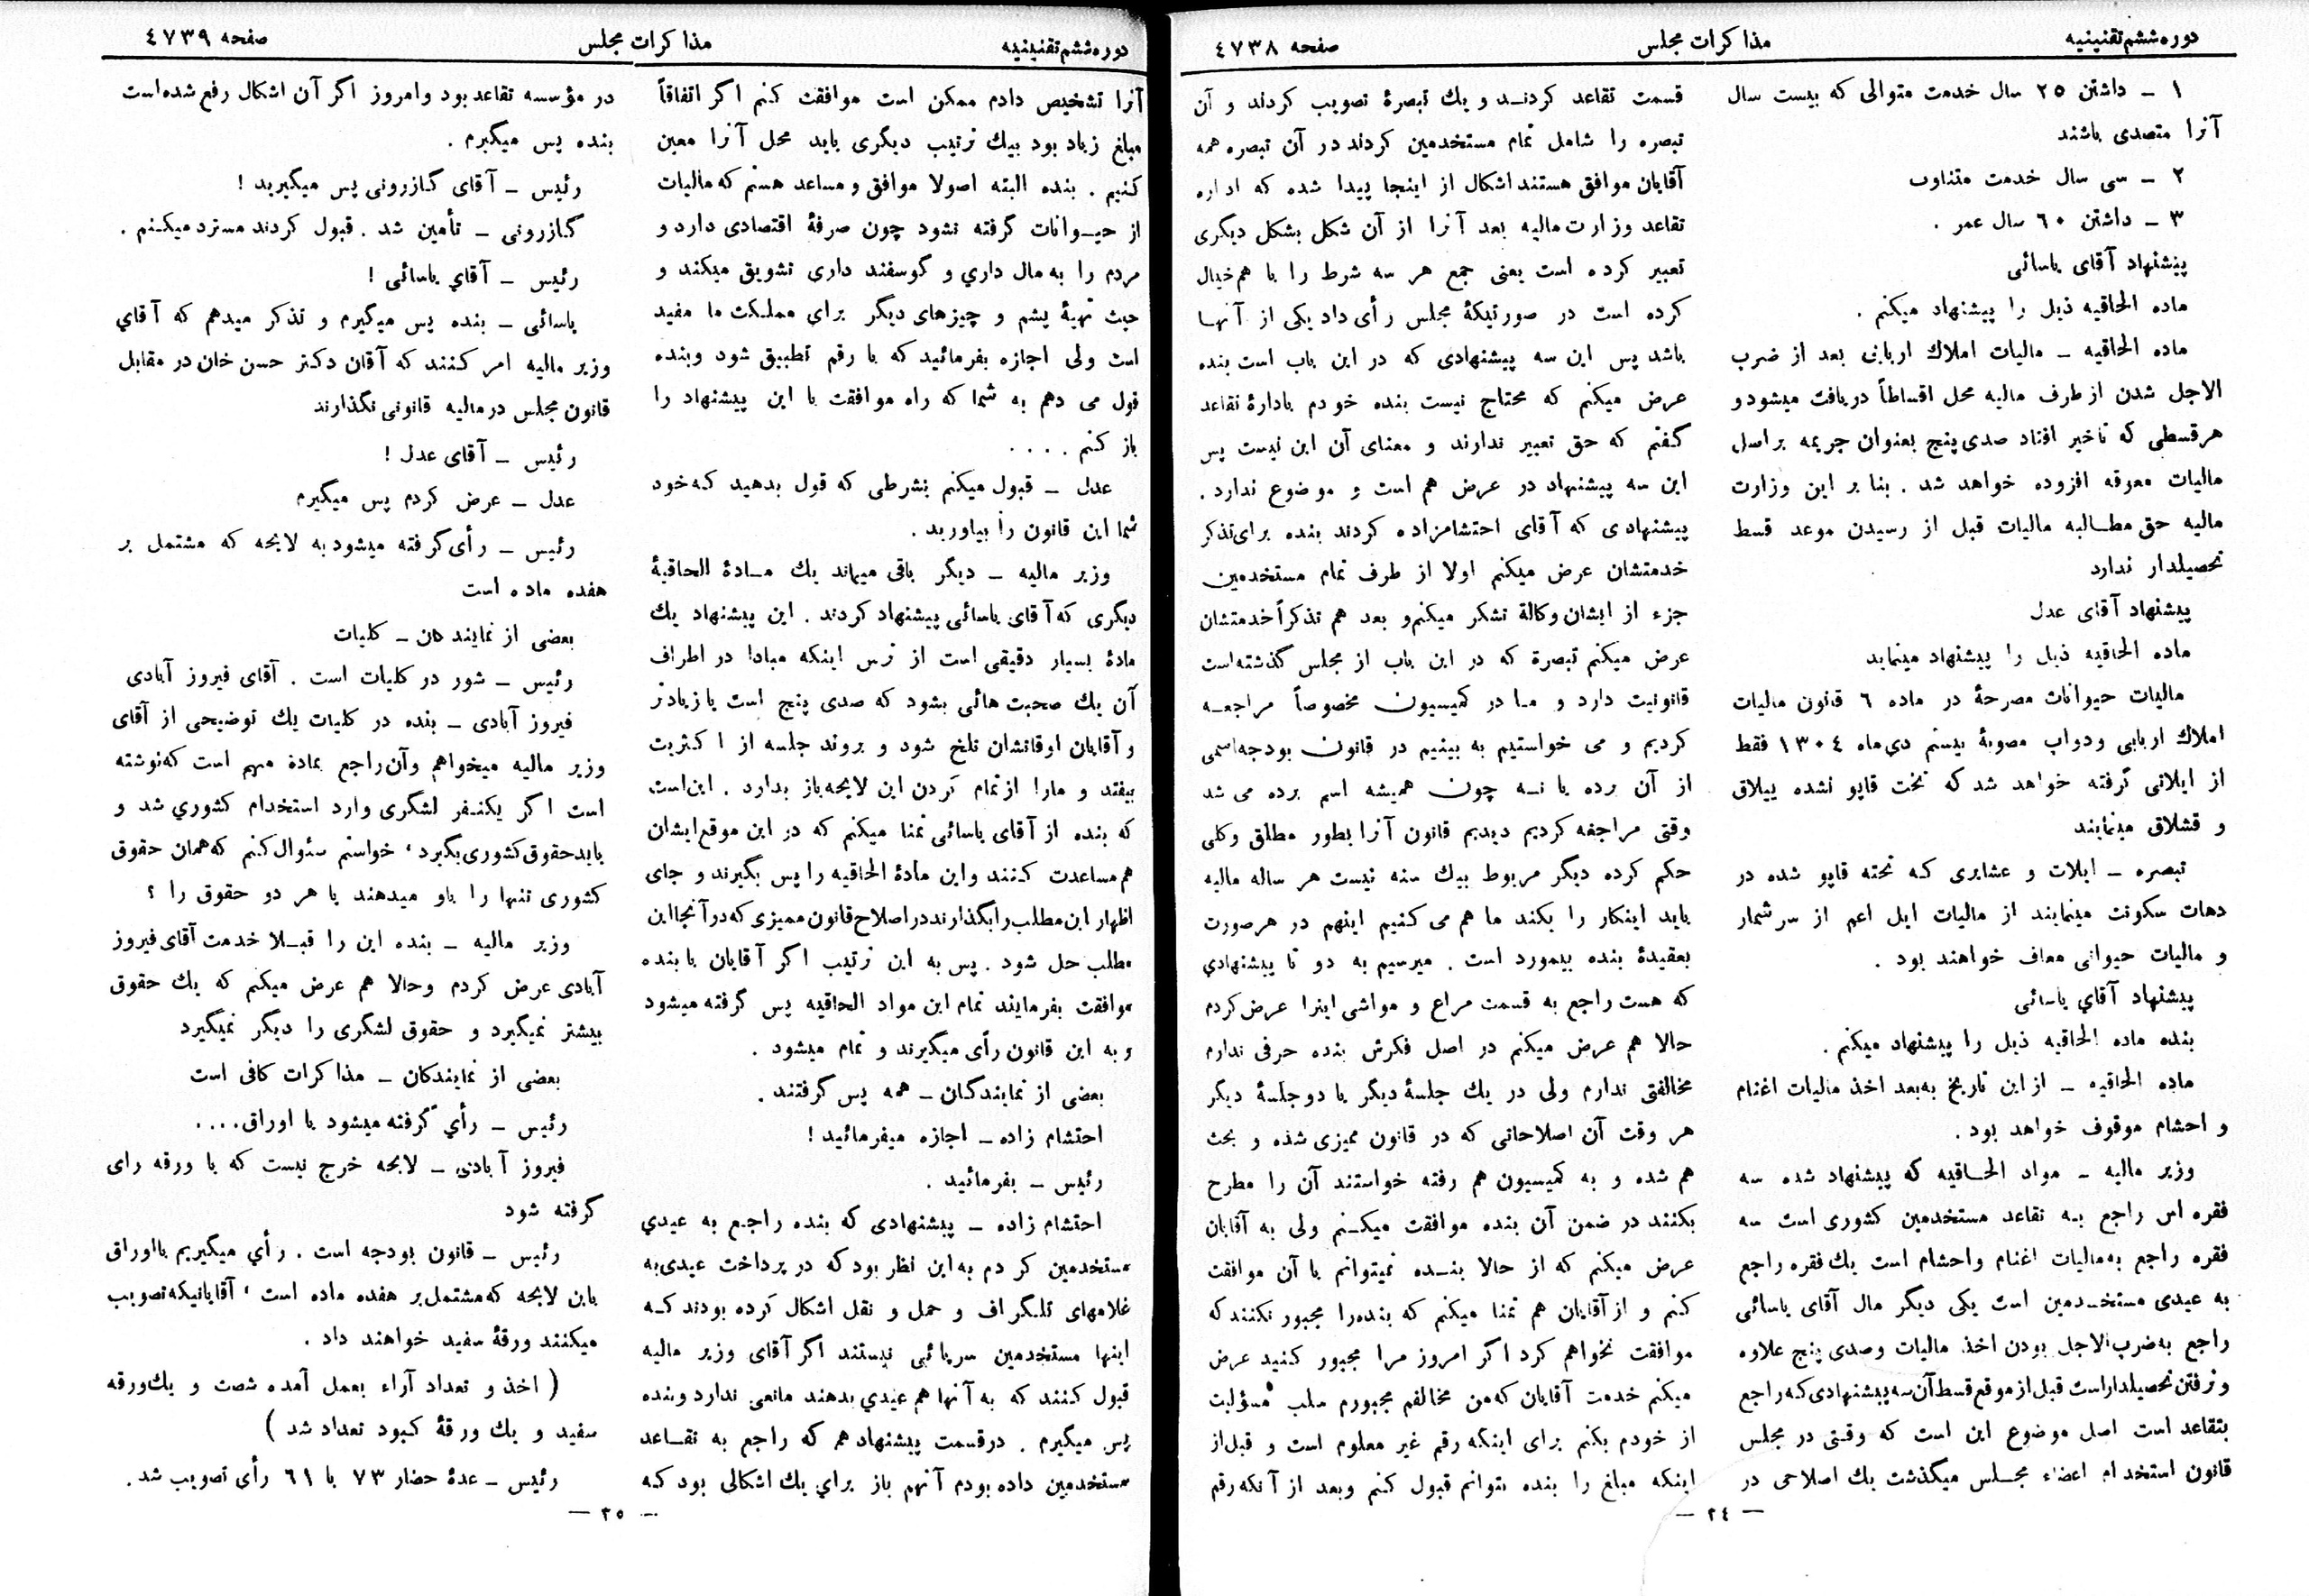 دوره ششم تقنینیه
مذاکرات مجلس
صفحه ٤٧٣٨
١ ـ داشتن ٢٥ سال خدمت متوالی که بیست سال
آنرا متصدی باشند
٢ ـ سی سال خدمت متناوب
٣ ـ داشتن ٦٠ سال عمر .
پیشنهاد آقای یاسائی
ماده الحاقیه ذیل را پیشنهاد میکنم .
ماده الحاقیه ـ مالیات املاك اربابی بعد از ضرب
الاجل شدن از طرف مالیه محل اقساطاً دریافت میشود و
هر قسطی که تاخیر افتاد صدی پنج بعنوان جریمه بر اصل
مالیات معوقه افزوده خواهد شد . بنا بر این وزارت
مالیه حق مطالبه مالیات قبل از رسیدن موعد قسط
تحصیلدار ندارد
پیشنهاد آقای عدل
ماده الحاقیه ذیل را پیشنهاد مینماید
مالیات حیوانات مصرحۀ در ماده ٦ قانون مالیات
املاك اربابی ودواب مصوبۀ بیستم دی ماه ١٣٠٤ فقط
از ایلاتی گرفته خواهد شد که تخت قاپو نشده ییلاق
و قشلاق مینمایند
تبصره ـ ایلات و عشایری که تخته قاپو شده در
دهات سکونت مینمایند از مالیات ایل اعم از سر شمار
و مالیات حیوانی معاف خواهند بود .
پیشنهاد آقاي یاسائی
بنده ماده الحاقیه ذیل را پیشنهاد میکنم .
ماده الحاقیه ـ از این تاریخ به بعد اخذ مالیات اغنام
و احشام موقوف خواهد بود .
وزیر مالیه ـ مواد الحاقیه که پیشنهاد شده سه
فقره اس راجع به تقاعد مستخدمین کشوری است سه
فقره راجع به مالیات اغنام واحشام است یك فقره راجع
به عیدی مستخدمین است یکی دیگر مال آقای یاسائی
راجع به ضرب الاجل بودن اخذ مالیات وصدی پنج علاوه
ونرفتن تحصیلدار است قبل از موقع قسط آن سه پیشنهادی که راجع
بتقاعد است اصل موضوع این است که وقتی در مجلس
قانون استخدام اعضاء مجلس میگذشت یك اصلاحی در
قسمت تقاعد کردند و یك تبصرۀ تصویب کردند و آن
تبصره را شامل تمام مستخدمین کردند در آن تبصره همه
آقایان موافق هستند اشکال از اینجا پیدا شده که اداره
تقاعد وزارت مالیه بعد آنرا از آن شکل بشکل دیگری
تعبیر کرده است یعنی جمع هر سه شرط را با هم خیال
کرده است در صورتیکۀ مجلس رأی داد یکی از آنها
باشد پس این سه پیشنهادی که در این باب است بنده
عرض میکنم که محتاج نیست بنده خودم بادارۀ تقاعد
گفتم که حق تعبیر ندارند و معنای آن این نیست پس
این سه پیشنهاد در عرض هم است و موضوع ندارد .
پیشنهادی که آقای احتشامزاده کردند بنده برای تذکر
خدمتشان عرض میکنم اولا از طرف تمام مستخدمین
جزء از ایشان وکالة تشکر میکنم و بعد هم تذکراً خدمتشان
عرض میکنم تبصرۀ که در این باب از مجلس گذشته است
قانونیت دارد و ما در کمیسیون مخصوصاً مراجعه
کردیم و می خواستیم به بینیم در قانون بودجه اسمی
از آن برده یا نه چون همیشه اسم برده می شد
وقتی مراجعه کردیم دیدیم قانون آنرا بطور مطلق وکلی
حکم کرده دیگر مربوط بیك سنه نیست هر ساله مالیه
باید اینکار را بکند ما هم می کنیم اینهم در هر صورت
بعقیدۀ بنده بیمورد است . میرسیم به دو تا پیشنهادي
که هست راجع به قسمت مراع و مواشی اینرا عرض کردم
حالا هم عرض میکنم در اصل فکرش بنده حرفی ندارم
مخالفتی ندارم ولی در یك جلسۀ دیگر یا دو جلسۀ دیگر
هر وقت آن اصلاحاتی که در قانون ممیزی شده و بحث
هم شده و به کمیسیون هم رفته خواستند آن را مطرح
بکنند در ضمن آن بنده موافقت میکنم ولی به آقایان
عرض میکنم که از حالا بنده نمیتوانم با آن موافقت
کنم و از آقایان هم تمنا میکنم که بنده را مجبور نکنند که
موافقت نخواهم کرد اگر امروز مرا مجبور کنید عرض
میکنم خدمت آقایان که من مخالفم مجبورم سلب مسؤلیت
از خودم بکنم برای اینکه رقم غیر معلوم است و قبل از
اینکه مبلغ را بنده بتوانم قبول کنم وبعد از آنکه رقم
— ٢٤ —
دوره ششم تقنینیه
مذاکرات مجلس
صفحه ٤٧٣٩
آنرا تشخیص دادم ممکن است موافقت کنم اگر اتفاقاً
مبلغ زیاد بود بیك ترتیب دیگری باید محل آنرا معین
کنیم . بنده البته اصولا موافق و مساعد هستم که مالیات
از حیوانات گرفته نشود چون صرفۀ اقتصادی دارد و
مردم را به مال داري و گوسفند داری تشویق میکند و
حیث تهیۀ پشم و چیزهای دیگر براي مملکت ما مفید
است ولی اجازه بفرمائید که با رقم تطبیق شود وبنده
قول می دهم به شما که راه موافقت با این پیشنهاد را
باز کنم . . . .
عدل ـ قبول میکنم بشرطی که قول بدهید که خود
شما این قانون را بیاورید .
وزیر مالیه ـ دیگر باقی میماند یك مادۀ الحاقیۀ
دیگری که آقای یاسائی پیشنهاد کردند . این پیشنهاد یك
مادۀ بسیار دقیقی است از ترس اینکه مبادا در اطراف
آن یك صحبت هائی بشود که صدی پنج است یا زیادتر
و آقایان اوقاتشان تلخ شود و بروند جلسه از اکثریت
بیفتد و مارا از تمام کردن این لایحه باز بدارد . این است
که بنده از آقای یاسائی تمنا میکنم که در این موقع ایشان
هم مساعدت کنند واین مادۀ الحاقیه را پس بگیرند و جای
اظهار این مطلب را بگذارند در اصلاح قانون ممیزی که در آنجا این
مطلب حل شود . پس به این ترتیب اگر آقایان با بنده
موافقت بفرمایند تمام این مواد الحاقیه پس گرفته میشود
و به این قانون رأی میگیرند و تمام میشود .
بعضی از نمایندگان ـ همه پس گرفتند .
احتشام زاده ـ اجازه میفرمائید !
رئیس ـ بفرمائید .
احتشام زاده ـ پیشنهادی که بنده راجع به عیدي
مستخدمین کردم به این نظر بود که در پرداخت عیدی به
غلامهای تلگراف و حمل و نقل اشکال کرده بودند که
اینها مستخدمین سرپائی نیستند اگر آقای وزیر مالیه
قبول کنند که به آنها هم عیدي بدهند مانعی ندارد وبنده
پس میگیرم . در قسمت پیشنهاد هم که راجع به تقاعد
مستخدمین داده بودم آنهم باز براي یك اشکالی بود که
در مؤسسه تقاعد بود وامروز اگر آن اشکال رفع شده است
بنده پس میگیرم .
رئیس ـ آقای کازرونی پس میگیرید !
کازرونی ـ تأمین شد . قبول کردند مسترد میکنم .
رئیس ـ آقاي یاسائی !
یاسائی ـ بنده پس میگیرم و تذکر میدهم که آقاي
وزیر مالیه امر کنند که آقان دکتر حسن خان در مقابل
قانون مجلس در مالیه قانونی نگذارند
رئیس ـ آقای عدل !
عدل ـ عرض کردم پس میگیرم
رئیس ـ رأی گرفته میشود به لایحه که مشتمل بر
هفده ماده است
بعضی از نمایندگان ـ کلیات
رئیس ـ شور در کلیات است . آقای فیروز آبادی
فیروز آبادی ـ بنده در کلیات یك توضیحی از آقای
وزیر مالیه میخواهم وآن راجع بمادۀ مهم است که نوشته
است اگر یکنفر لشگری وارد استخدام کشوري شد و
باید حقوق کشوری بگیرد ، خواستم سئوال کنم که همان حقوق
کشوری تنها را باو میدهند یا هر دو حقوق را ؟
وزیر مالیه ـ بنده این را قبلا خدمت آقای فیروز
آبادی عرض کردم وحالا هم عرض میکنم که یك حقوق
بیشتر نمیگیرد و حقوق لشگری را دیگر نمیگیرد
بعضی از نمایندگان ـ مذاکرات کافی است
رئیس ـ رأي گرفته میشود با اوراق....
فیروز آبادی ـ لایحه خرج نیست که با ورقه رای
گرفته شود
رئیس ـ قانون بودجه است . رأي میگیریم بااوراق
باین لایحه که مشتمل بر هفده ماده است ، آقایانیکه تصویب
میکنند ورقۀ سفید خواهند داد .
( اخذ و تعداد آراء بعمل آمده شصت و یك ورقه
سفید و یك ورقۀ کبود تعداد شد )
رئیس ـ عدۀ حضار ٧٣ با ٦١ رأی تصویب شد .
— ٢٥ —